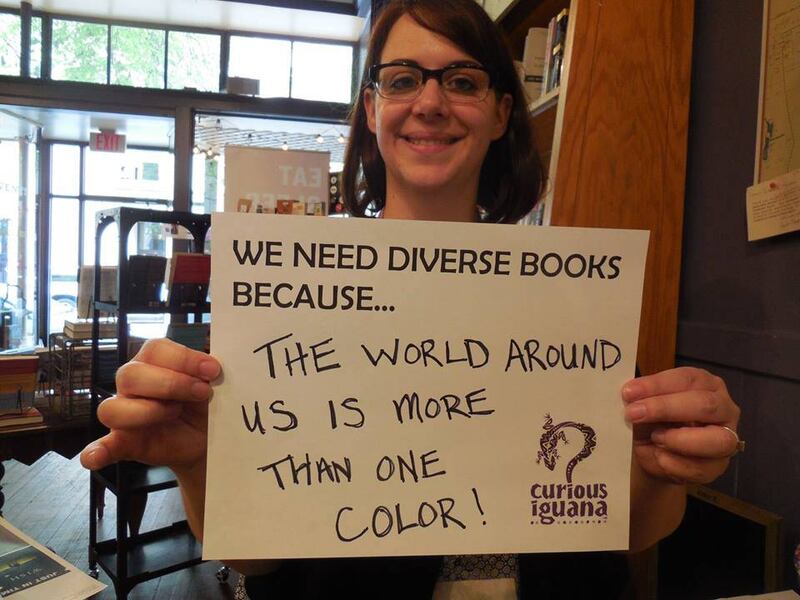 EXIT
EAT
SLEEP
WE NEED DIVERSE BOOKS
BECAUSE...
THE WORLD AROUND
US IS MORE
THAN ONE
COLOR!
curious
iguana
JUST IN TIM